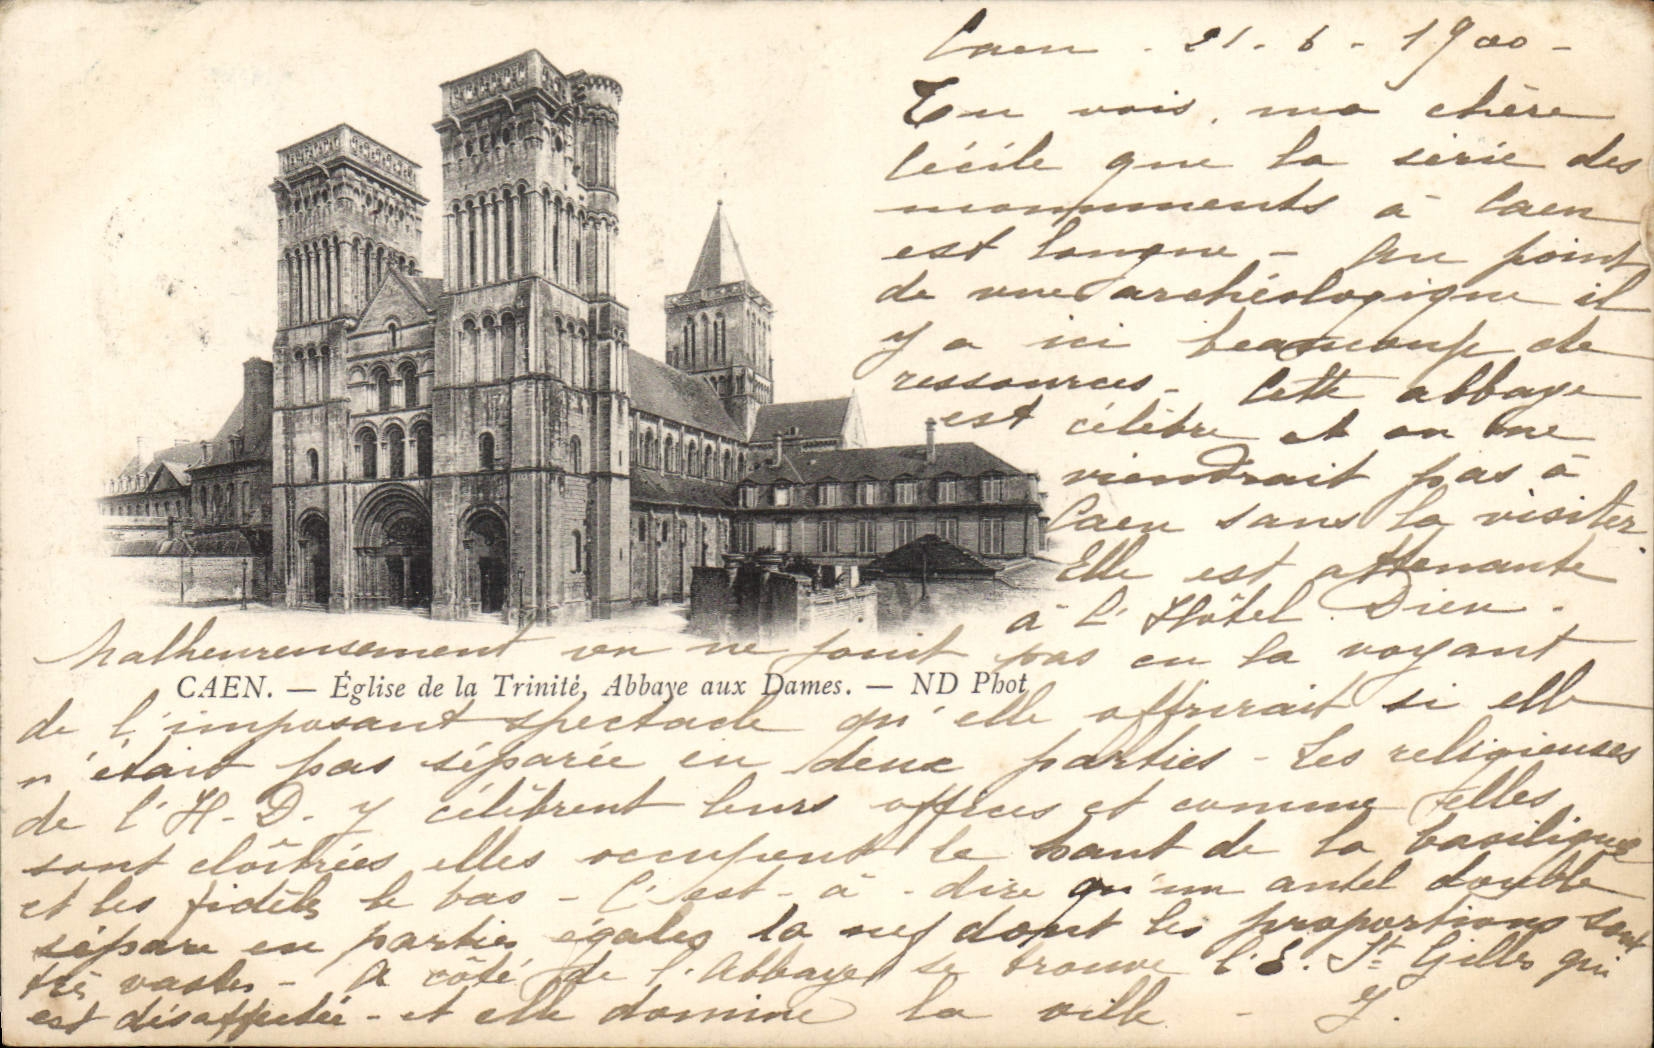 Caen - 21 - 6 - 1900 -
Tu vois, ma chère
Cécile que la série des
monuments à Caen
est longue - Au point
de vue archéologique il
y a ici beaucoup de
ressources - Cette abbaye
est célèbre et on ne
viendrait pas à
Caen sans la visiter.
Elle est attenante
à l'Hôtel Dieu -
Malheureusement on ne jouit pas en la voyant
CAEN. — Église de la Trinité, Abbaye aux Dames. — ND Phot
de l'imposant spectacle qu'elle offrirait si elle
n'était pas séparée en deux parties - Les religieuses
de l'H. D. y célèbrent leurs offices et comme elles
sont cloîtrées elles occupent le haut de la basilique
et les fidèles le bas - C'est-à-dire qu'un autel double
sépare en parties égales la nef dont les proportions sont
très vastes - A côté de l'Abbaye se trouve l'E. St Gilles qui
est désaffectée - et elle domine la ville - Y.